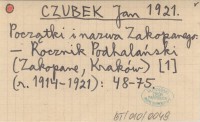 CZUBEK Jan 1921.
Początki i nazwa Zakopanego.
— Rocznik Podhalański
(Zakopane, Kraków) [1]
(r. 1914-1921): 48-75.
BT/010/0048